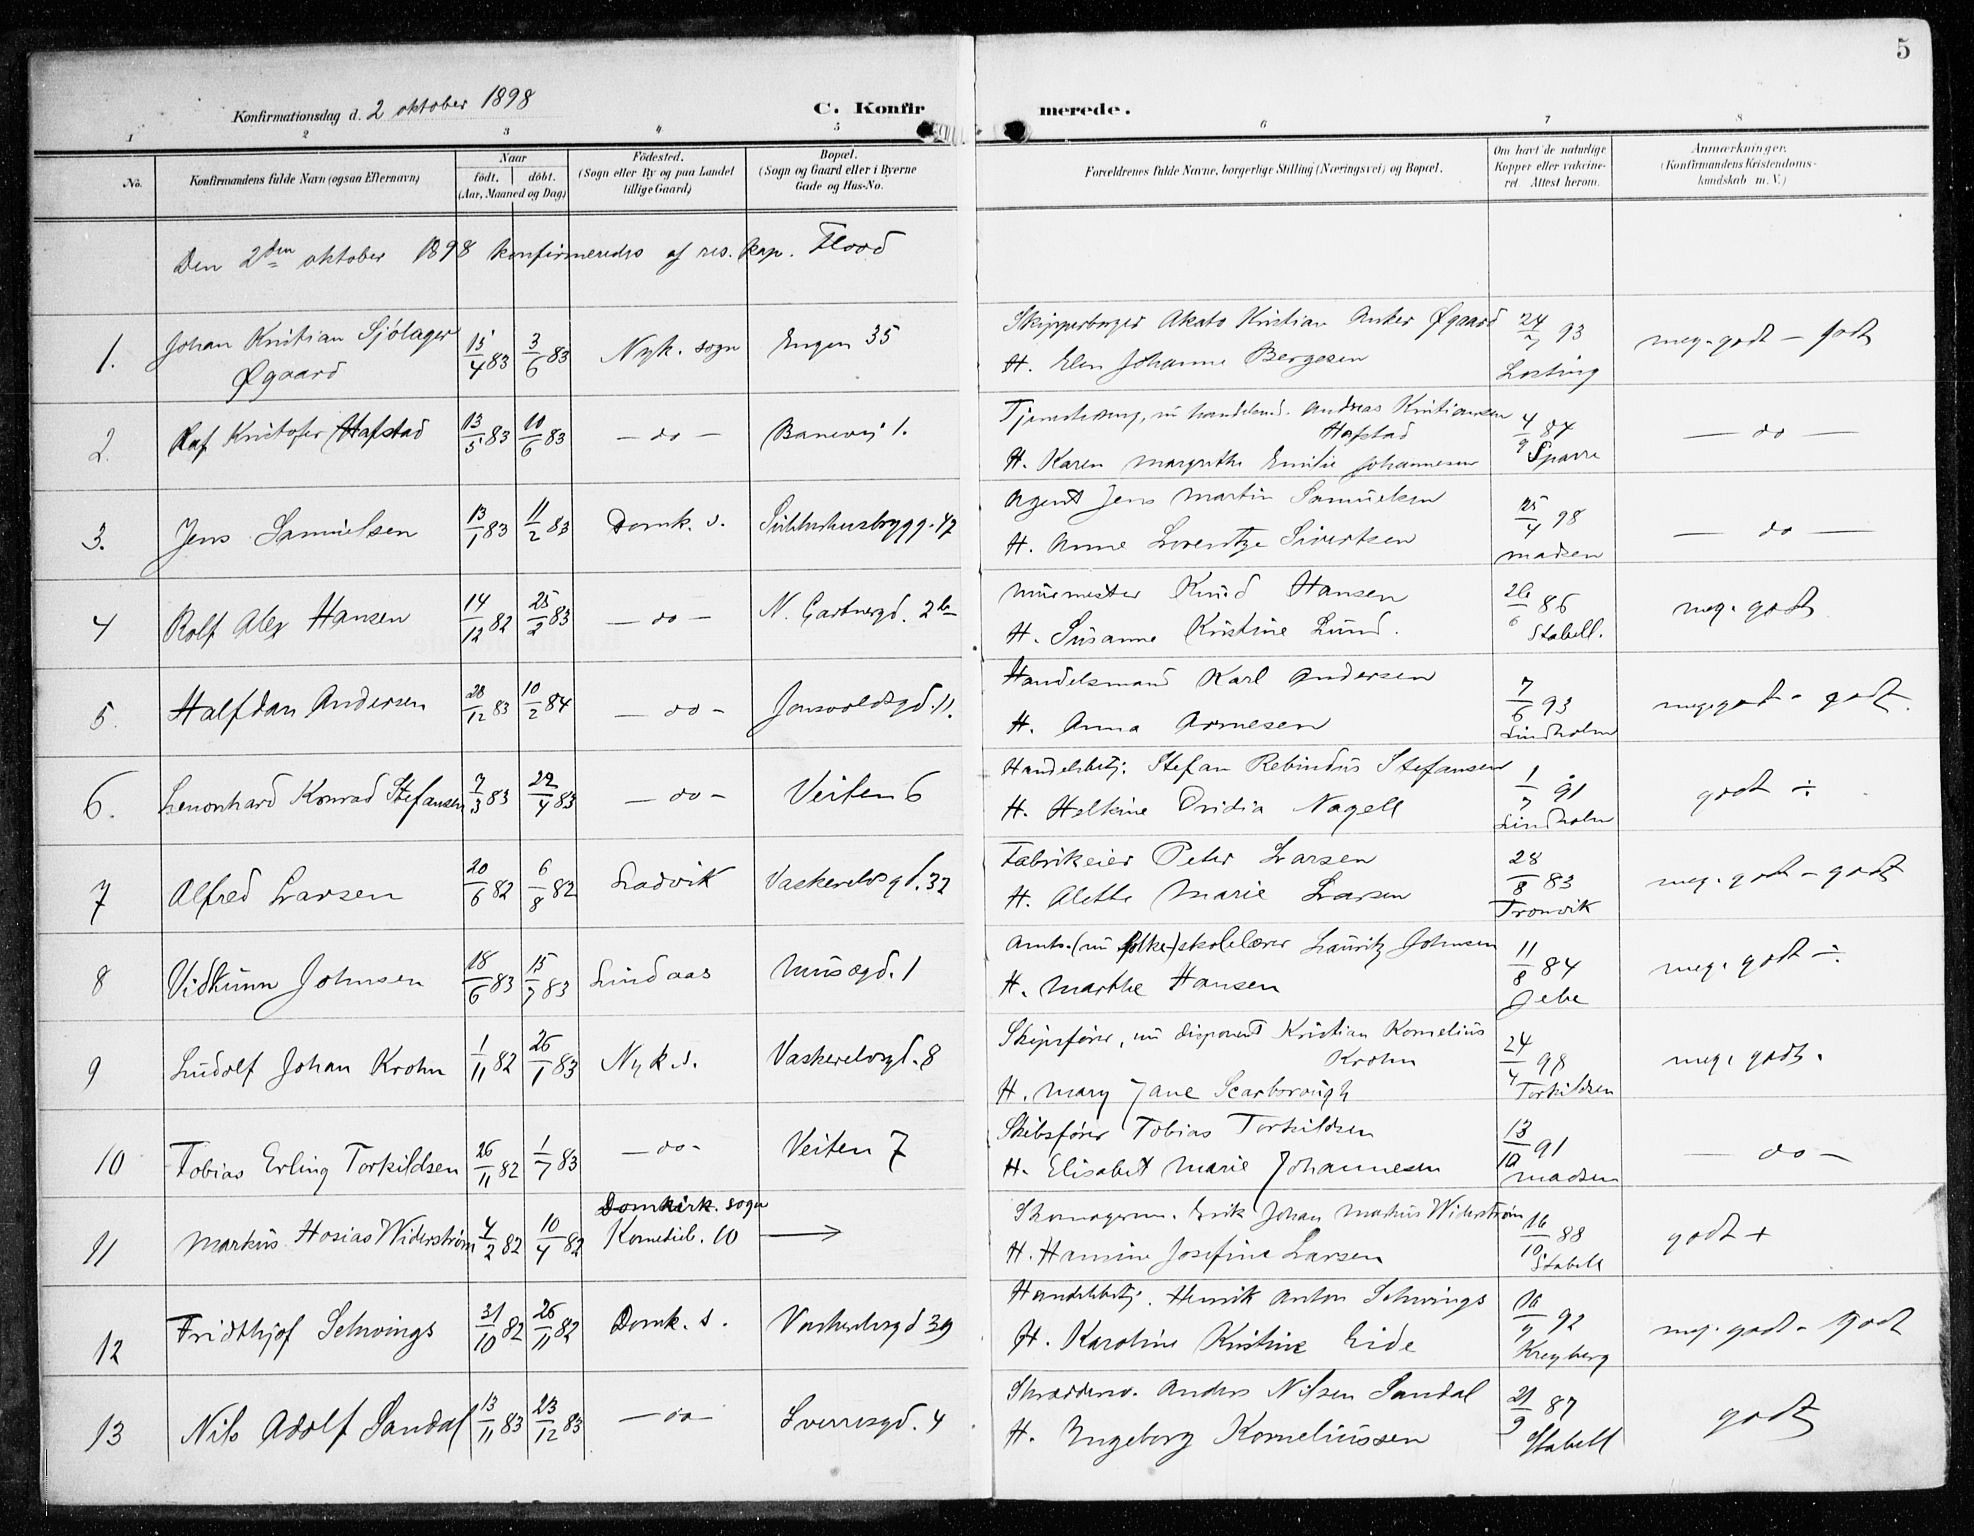 5
Konfirmationsdag d. 2 oktober 1898
C. Konfirmerede.
1 2 3 4 5 6 7 8
No.
Konfirmandens fulde Navn (ogsaa Efternavn)
Naar
født. døbt.
(Aar, Maaned og Dag)
Fødested.
(Sogn eller By og paa Landet
tillige Gaard)
Bopæl.
(Sogn og Gaard eller i Byerne
Gade og Hus-No.
Forældrenes fulde Navne, borgerlige Stilling (Næringsvei) og Bopæl.
Om havt de naturlige
Kopper eller vakcine-
ret. Attest herom.
Anmærkninger.
(Konfirmandens Kristendoms-
kundskab m. V.)
Den 2den oktober 1898 konfirmeredes af res. kap. Flood
1. Johan Kristian Sjölager 15/4 83 3/6 83 Nyk. sogn Engen 35 Skipperborger Akato Kristian Anker Øgaard 24/7 93 meg. godt - godt
Øgaard H. Elen Johanne Bergesen Losting
2. Kristofer Hafstad 13/5 83 10/6 83 - do - Banevej 1. nu handelsmd. Andreas Kristiansen 4/9 84 - do -
Hafstad
H. Karen Margrethe Emilie Johannesen Sparre
3. Jens Samuelsen 13/1 83 11/2 83 Domk. s. Agent Jens Martin Samuelsen 25/4 98 - do -
H. Anne Lorentze Sivertsen Madsen
4 Rolf Alex Hansen 14/12 82 25/2 83 - do - N. Gartnergd. 2 Murmester Knud Hansen 26/6 86 meg. godt
H. Susanne Kristine Lund. Stabell.
5. Halfdan Andersen 28/12 83 10/2 84 - do - Jonsvoldsgd. 11. Handelsmand Karl Andersen 7/6 93 meg. godt - godt.
H. Anna Arnesen Lindholm
6. Lenonhard Konrad Stefansen 7/3 83 22/4 83 - do - Veiten 6 Handelsbetj. Stefan Rebindus Stefansen 1/7 91 godt ÷
H. Helkine Ovidia Nagell Lindholm
7 Alfred Larsen 20/6 82 6/8 82 Ladvik Vaskerelvsgd. 32 Fabrikeier Peter Larsen 28/8 83 meg. godt - godt
H. Alette Marie Larsen Tronvik
8 Vidkunn Johnsen 18/6 83 15/7 83 Lindaas Musægd. 1 Amts- (nu folke-) skolelærer Lauritz Johnsen 11/8 84 meg. godt ÷
H. Marthe Hansen Jebe
9 Ludolf Johan Krohn 1/11 82 26/1 83 Nyk. s. Vaskerelvsgd. 8 Skipsfører, nu disponent Kristian Kornelius 24/4 98 meg. godt.
Krohn
H. Mary Jane Scarborough Torkildsen
10 Tobias Erling Torkildsen 26/11 82 1/7 83 - do - Veiten 7 Skibsfører Tobias Torkildsen 13/10 91 - do -
H. Elisabet Marie Johannesen Madsen
Domkirk. sogn
11 Markus Hosias Widerstrøm 4/2 82 10/4 82 Komedieb. 10 Skomagerm. Erik Johan Markus Widerstrøm 16/10 88 godt +
H. Hannine Josefine Larsen Stabell
12 Fridthjof Schwings 31/10 82 26/11 82 Domk. s. Vaskerelvsgd 39 Handelsbetj. Henrik Anton Schwings 16/9 92 meg. godt - godt
H. Karoline Kristine Eide Kreyberg
13 Nils Adolf Sandal 13/11 83 23/12 83 - do - Sverresgd. 4 Skræddersv. Anders Nilsen Sandal 21/9 87 godt
H. Ingeborg Korneliussen Stabell